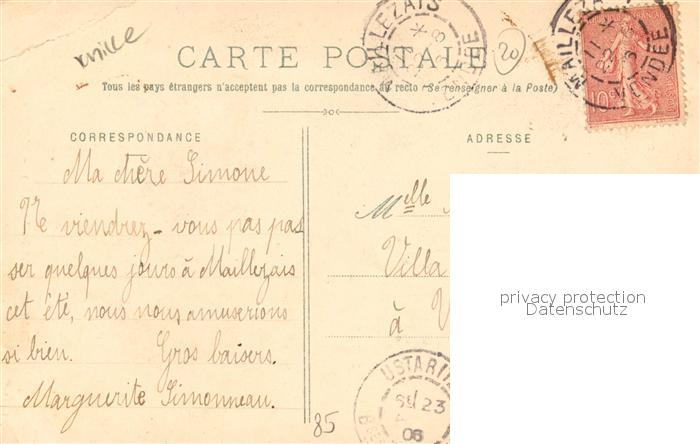 CARTE POSTALE
20
Tous les pays étrangers n'acceptent pas la correspondance au recto (Se renseigner à la Poste)
CORRESPONDANCE
ADRESSE
Ma chère Simone
Ne viendrez-vous pas pas
ser quelques jours à Maillezais
cet été, nous nous amuserions
si bien. Gros baisers.
Marguerite Simonneau.
Melle
Villa
à
privacy protection
Datenschutz
MAILLEZAIS
VENDÉE
10
USTARI
23
06
85